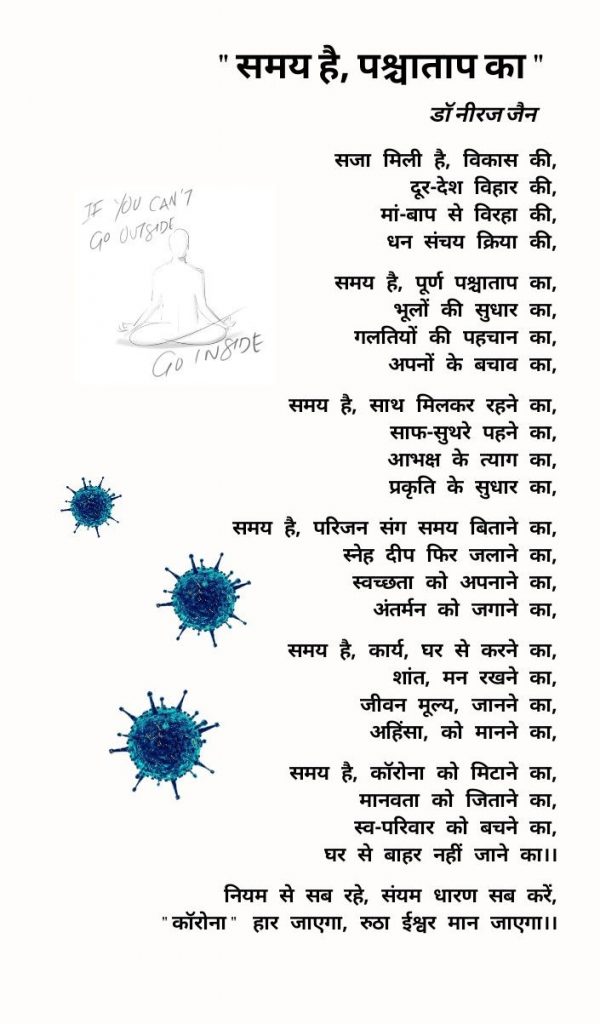 " समय है, पश्चाताप का "
डॉ नीरज जैन
सजा मिली है, विकास की,
दूर-देश विहार की,
मां-बाप से विरहा की,
धन संचय क्रिया की,
समय है, पूर्ण पश्चाताप का,
भूलों की सुधार का,
गलतियों की पहचान का,
अपनों के बचाव का,
समय है, साथ मिलकर रहने का,
साफ-सुथरे पहने का,
आभक्ष के त्याग का,
प्रकृति के सुधार का,
समय है, परिजन संग समय बिताने का,
स्नेह दीप फिर जलाने का,
स्वच्छता को अपनाने का,
अंतर्मन को जगाने का,
समय है, कार्य, घर से करने का,
शांत, मन रखने का,
जीवन मूल्य, जानने का,
अहिंसा, को मानने का,
समय है, कॉरोना को मिटाने का,
मानवता को जिताने का,
स्व-परिवार को बचने का,
घर से बाहर नहीं जाने का।।
नियम से सब रहे, संयम धारण सब करें,
" कॉरोना " हार जाएगा, रुठा ईश्वर मान जाएगा।।
IF YOU CAN'T
GO OUTSIDE
GO INSIDE